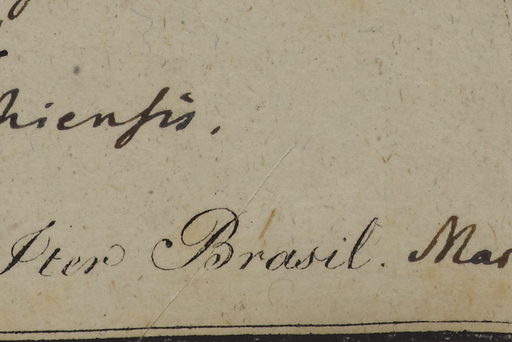 hiensis.
Iter Brasil. Mar